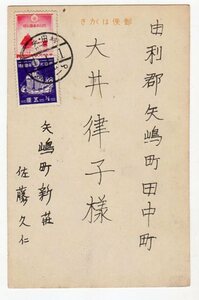 郵便はがき
由利郡矢嶋町田中町
大井律子様
矢嶋町新荘
佐藤久仁